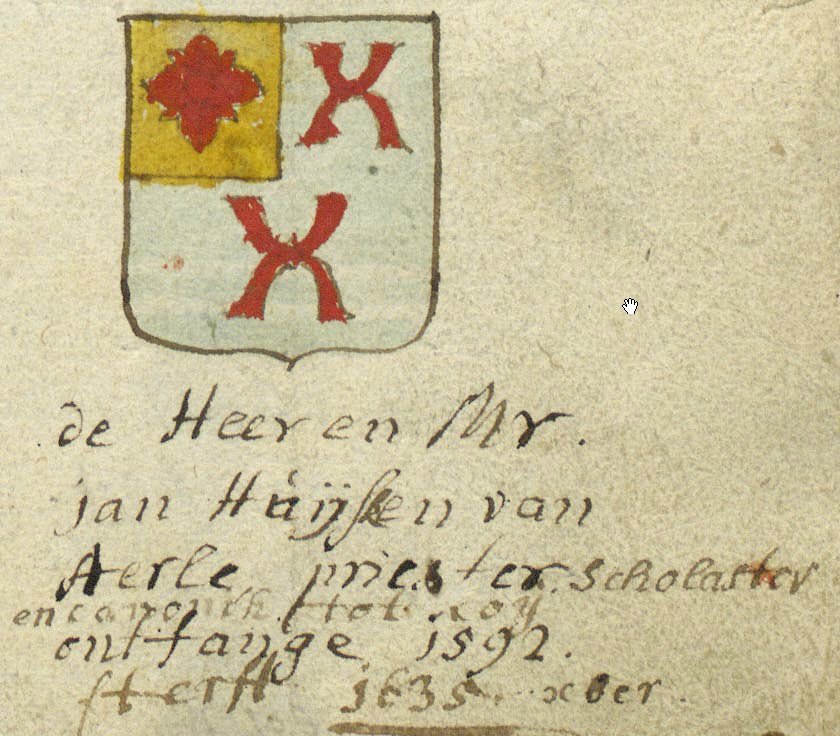 de Heer en Mr.
jan Huijsken van
Aerle priester scholaster
en canonik tot roij
ontfange 1592.
sterft 1635 xber.